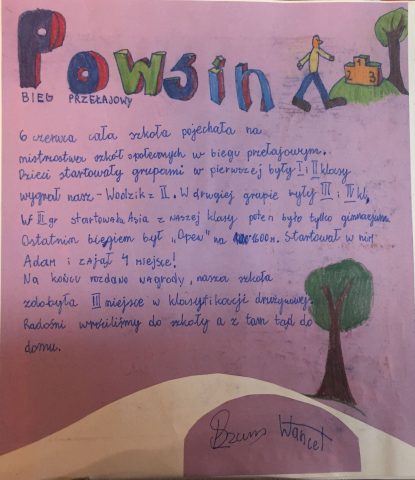 Powsin
BIEG PRZEŁAJOWY
2 1 3
6 czerwca cała szkoła pojechała na
mistrzostwa szkół społecznych w biegu przełajowym.
Dzieci startowały grupami w pierwszej były I i II klasy
wygrał nasz - Wodzik z II. W drugiej grupie były III i IV kl.
W III gr startowała Asia z naszej klasy potem było tylko gimnazjum
Ostatnim biegiem był „Open” na 1600m. Startował w nim
Adam i zajął 4 miejsce!
Na końcu rozdano nagrody, nasza szkoła
zdobyła III miejsce w klasyfikacji drużynowej.
Radośni wróciliśmy do szkoły a z tam tąd do
domu.